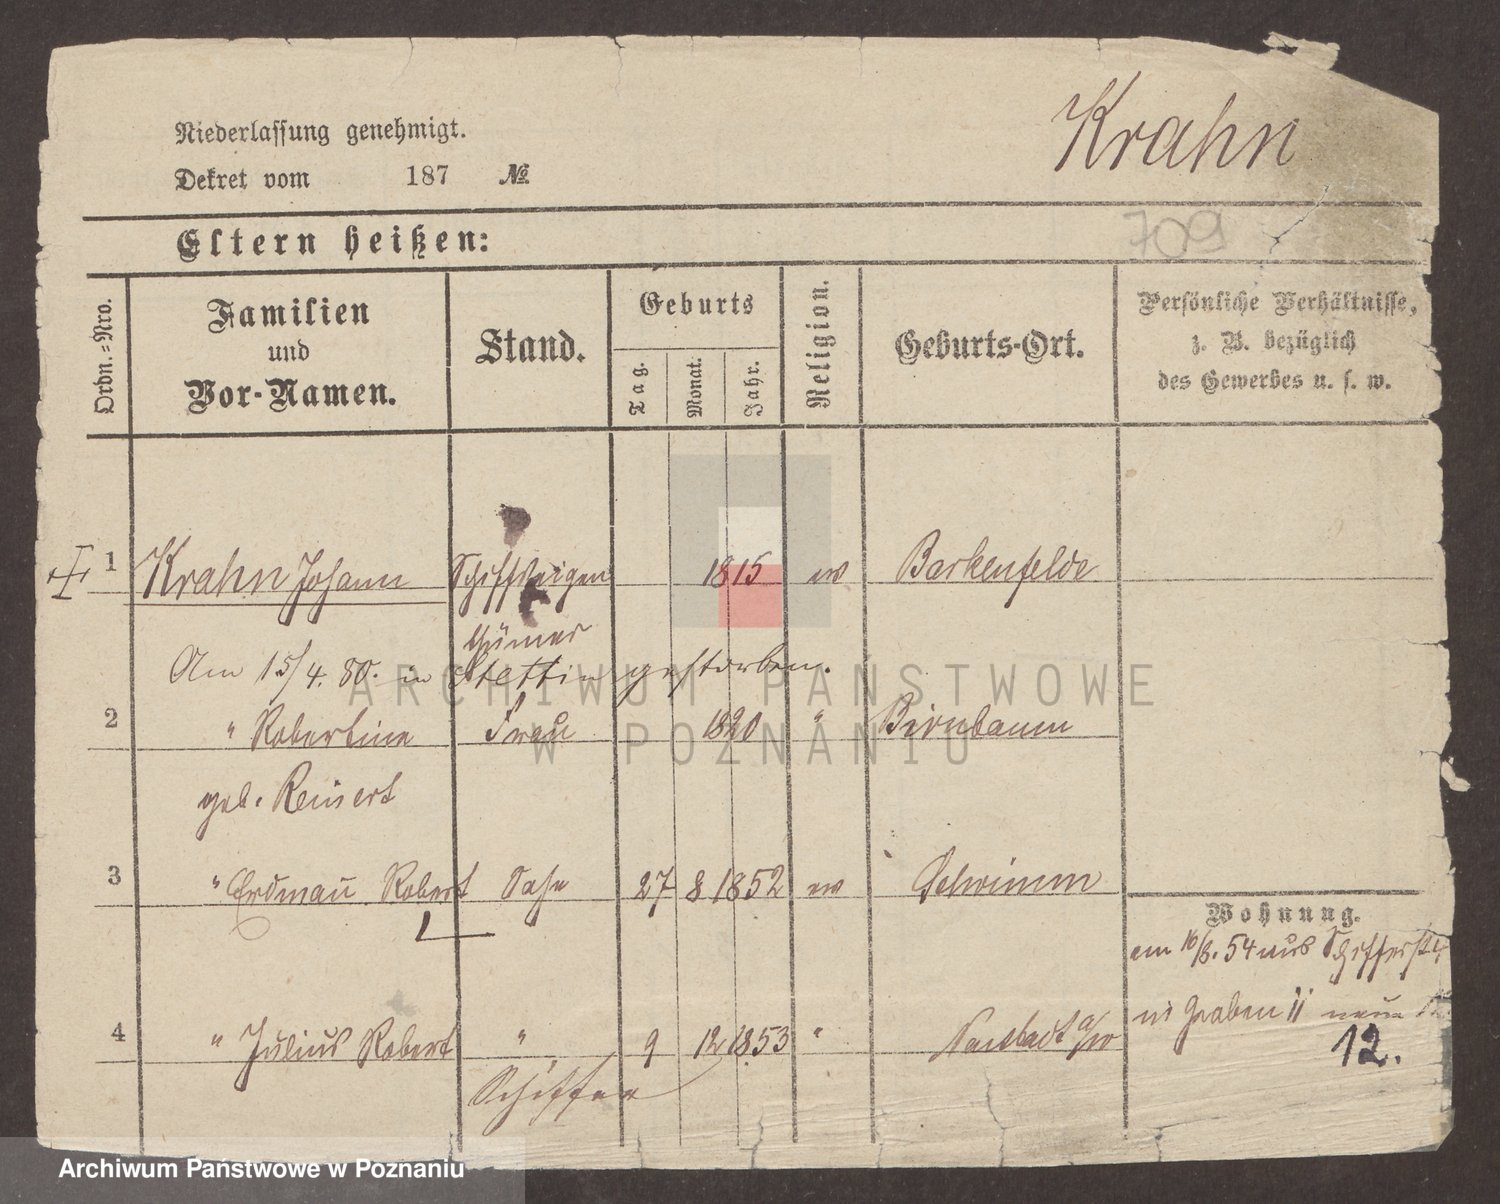 Krahn
Niederlassung genehmigt.
Dekret vom 187 №
709
Eltern heißen:
Ordn.=Nro. Familien und Vor-Namen. Stand. Geburts Tag. Monat. Jahr. Religion. Geburts-Ort. Persönliche Verhältnisse, z. B. bezüglich des Gewerbes u. s. w.
1 Krahn Johann Schiffseigen 1815 ev Barkenfelde
thümer
Am 15/4. 80. in Stettin gestorben.
2 " Robertine Frau 1820 " Birnbaum
geb. Reinert
3 " Erdmann Robert Sohn 27 8 1852 ev Schrimm
Wohnung.
am 16/8. 54 aus Schifferstr
4 " Julius Robert " 9 12 1853 " Neustadt a/W
Graben 11
12.
Schiffer
ARCHIWUM PAŃSTWOWE
W POZNANIU
Archiwum Państwowe w Poznaniu